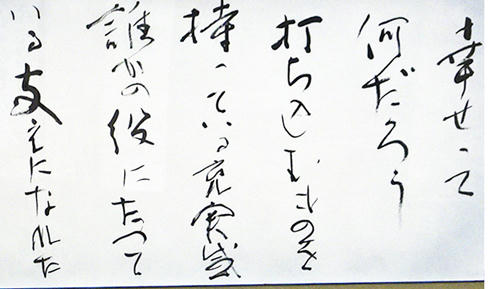 幸せって
何だろう
打ち込むものを
持っている充実感
誰かの役にたって
いる支えになれた